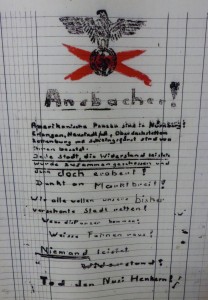 Ansbacher!
Amerikanische Panzer sind in Nürnberg!
Erlangen, Neustadt/A, Oberdachstetten
sind von
ihnen besetzt.
Jede Stadt, die Widerstand leistete
wurde zusammengeschossen und
dann doch erobert!
Denkt an Marktbreit!
Wir alle wollen unsere bisher
verschonte Stadt retten!
Weisse Fahnen raus!
Niemand leistet
Widerstand!
Tod den Nazi Henkern!